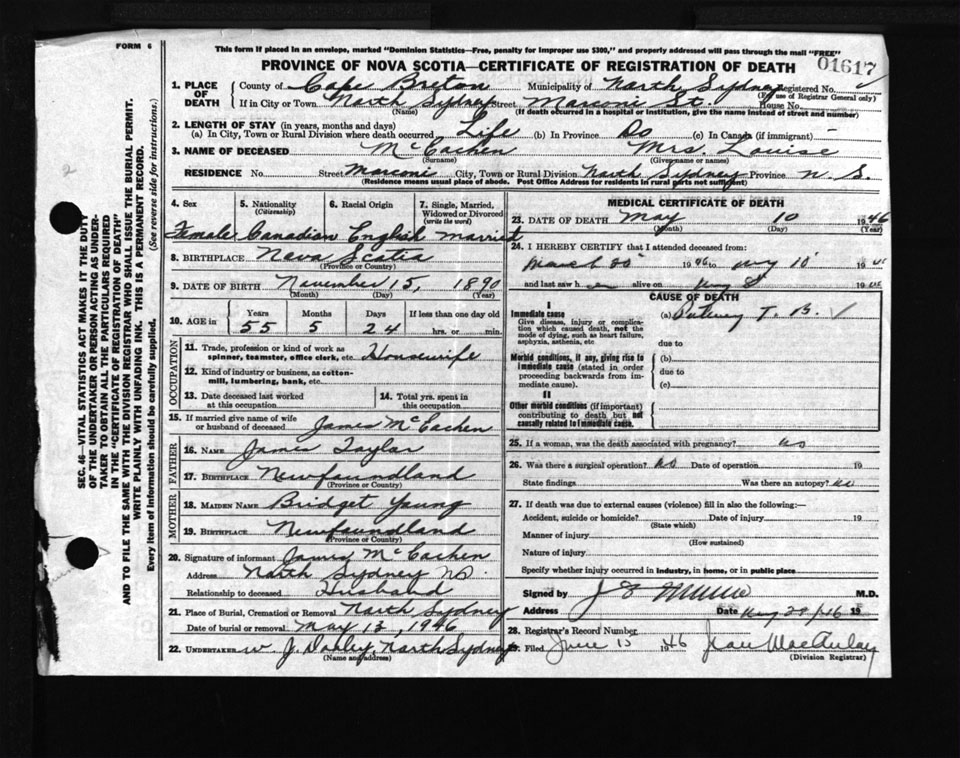 FORM 6
This form if placed in an envelope, marked "Dominion Statistics—Free, penalty for improper use $300," and properly addressed will pass through the mail "FREE"
PROVINCE OF NOVA SCOTIA—CERTIFICATE OF REGISTRATION OF DEATH
01617
SEC. 46—VITAL STATISTICS ACT MAKES IT THE DUTY
OF THE UNDERTAKER OR PERSON ACTING AS UNDER-
TAKER TO OBTAIN ALL THE PARTICULARS REQUIRED
IN THE "CERTIFICATE OF REGISTRATION OF DEATH"
AND TO FILE THE SAME WITH THE DIVISION REGISTRAR WHO SHALL ISSUE THE BURIAL PERMIT.
WRITE PLAINLY WITH UNFADING INK. THIS IS A PERMANENT RECORD.
Every item of information should be carefully supplied. (See reverse side for instructions.)
2
1. PLACE OF DEATH County of Cape Breton Municipality of North Sydney Registered No.
(For use of Registrar General only)
If in City or Town North Sydney Street Marconi St. House No.
(Name) (If death occurred in a hospital or institution, give its name instead of street and number)
2. LENGTH OF STAY (in years, months and days)
(a) In City, Town or Rural Division where death occurred Life (b) In Province Do (c) In Canada (if immigrant) -
3. NAME OF DECEASED McEachen Mrs. Louise
(Surname) (Given name or names)
RESIDENCE No. Street Marconi City, Town or Rural Division North Sydney Province N. S.
(Residence means usual place of abode. Post Office Address for residents in rural parts not sufficient)
4. Sex 5. Nationality (Citizenship) 6. Racial Origin 7. Single, Married, Widowed or Divorced (write the word)
Female Canadian English Married
8. BIRTHPLACE Nova Scotia
(Province or Country)
9. DATE OF BIRTH November 15, 1890
(Month) (Day) (Year)
10. AGE in Years Months Days If less than one day old
55 5 24 hrs. or min.
OCCUPATION
11. Trade, profession or kind of work as spinner, teamster, office clerk, etc. Housewife
12. Kind of industry or business, as cotton-mill, lumbering, bank, etc.
13. Date deceased last worked at this occupation 14. Total yrs. spent in this occupation
15. If married give name of wife or husband of deceased James McEachen
FATHER
16. NAME James Taylor
17. BIRTHPLACE Newfoundland
(Province or Country)
MOTHER
18. MAIDEN NAME Bridget Young
19. BIRTHPLACE Newfoundland
(Province or Country)
20. Signature of informant James McEachen
Address North Sydney NS.
Relationship to deceased Husband
21. Place of Burial, Cremation or Removal North Sydney
Date of burial or removal May 13, 1946
22. UNDERTAKER W. J. Dooley, North Sydney
(Name and address)
MEDICAL CERTIFICATE OF DEATH
23. DATE OF DEATH May 10 1946
(Month) (Day) (Year)
24. I HEREBY CERTIFY that I attended deceased from:
March 20 1946 to May 10 1946
and last saw her alive on May 8 1946
CAUSE OF DEATH
I
Immediate cause
Give disease, injury or complication which caused death, not the mode of dying, such as heart failure, asphyxia, asthenia, etc
(a) Pulmony T. B.
due to
Morbid conditions, if any, giving rise to immediate cause (stated in order proceeding backwards from immediate cause).
(b)
due to
(c)
II
Other morbid conditions (if important) contributing to death but not causally related to immediate cause.
25. If a woman, was the death associated with pregnancy? no
26. Was there a surgical operation? no Date of operation 19
State findings Was there an autopsy? no
27. If death was due to external causes (violence) fill in also the following:—
Accident, suicide or homicide? Date of injury 19
(State which)
Manner of injury
(How sustained)
Nature of injury
Specify whether injury occurred in industry, in home, or in public place
Signed by M.D.
Address Date May 28/46 19
28. Registrar's Record Number
29. Filed June 15 1946 Jean MacAulay
(Division Registrar)